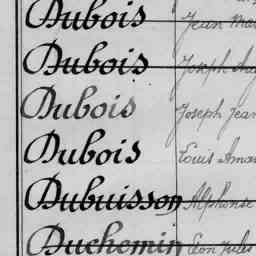 Dubois Jean Mar
Dubois Joseph Aug
Dubois Joseph Jean
Dubois Louis Aman
Dubuisson Alphonse
Duchemin Léon Jules